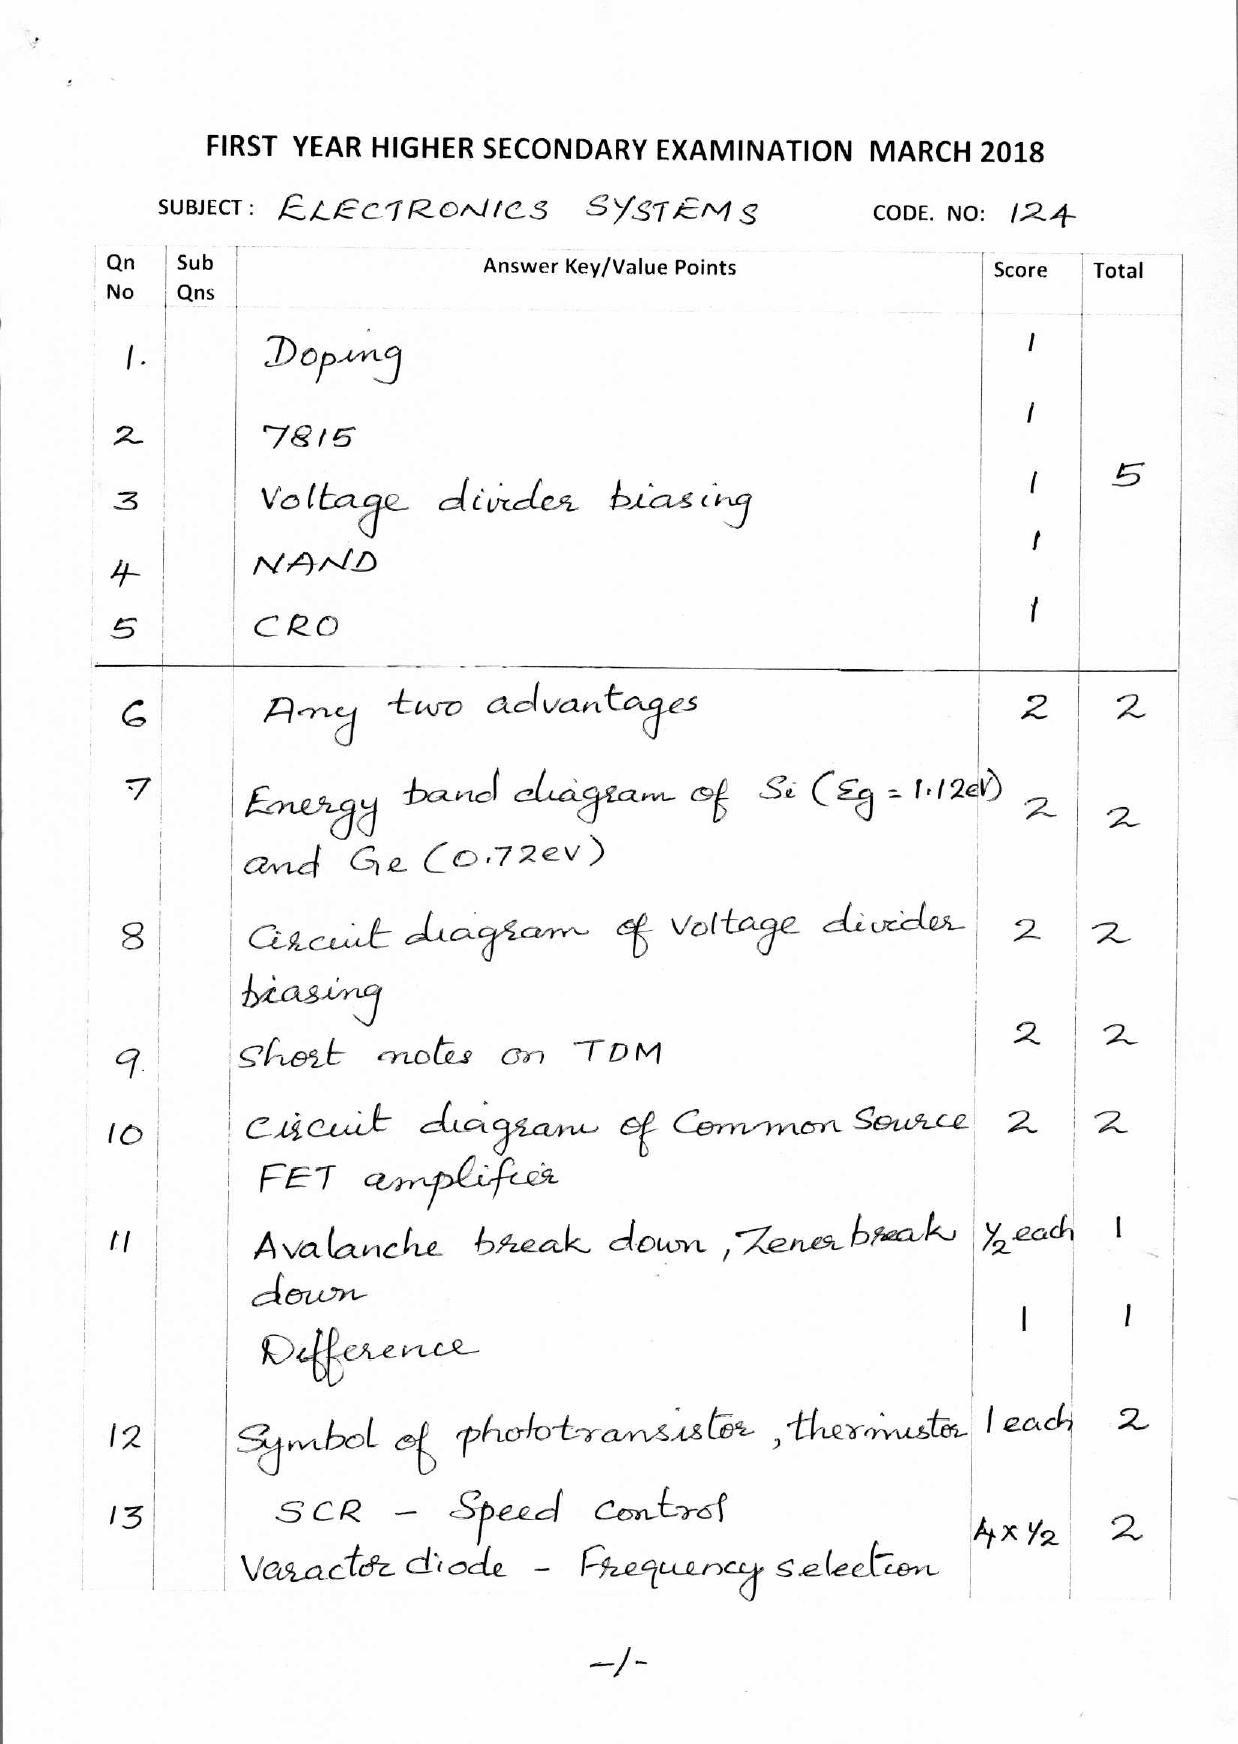 FIRST YEAR HIGHER SECONDARY EXAMINATION MARCH 2018
SUBJECT : ELECTRONICS SYSTEMS CODE. NO: 124
Qn No Sub Qns Answer Key/Value Points Score Total
1. Doping 1
2 7815 1
3 Voltage divider biasing 1 5
4 NAND 1
5 CRO 1
6 Any two advantages 2 2
7 Energy band diagram of Si (Eg = 1.12eV) 2 2
and Ge (0.72eV)
8 Circuit diagram of Voltage divider 2 2
biasing
9. Short notes on TDM 2 2
10 Circuit diagram of Common Source 2 2
FET amplifier
11 Avalanche break down , Zener break ½ each 1
down
Difference 1 1
12 Symbol of phototransistor , thermistor 1 each 2
13 SCR - Speed control 4 x ½ 2
Varactor diode - Frequency selection
-/-